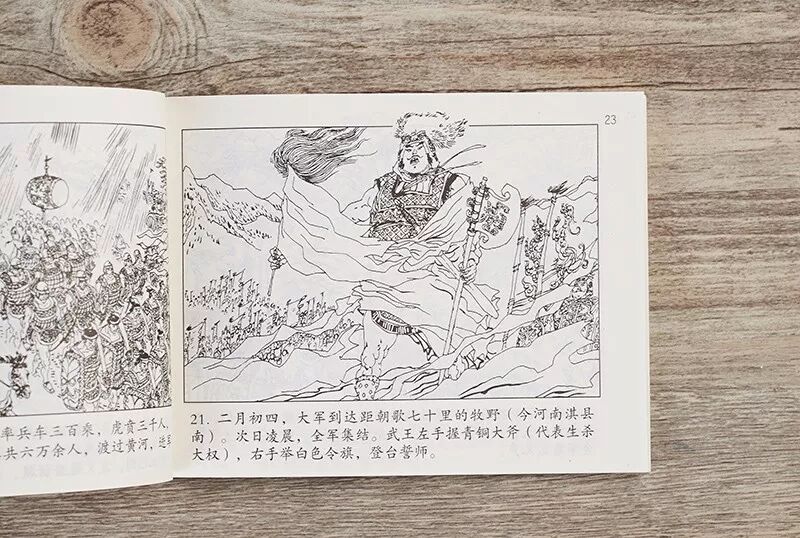 率兵车三百乘，虎贲三千人，
共六万余人，渡过黄河，进
23
21. 二月初四，大军到达距朝歌七十里的牧野（今河南淇县
南）。次日凌晨，全军集结。武王左手握青铜大斧（代表生杀
大权），右手举白色令旗，登台誓师。